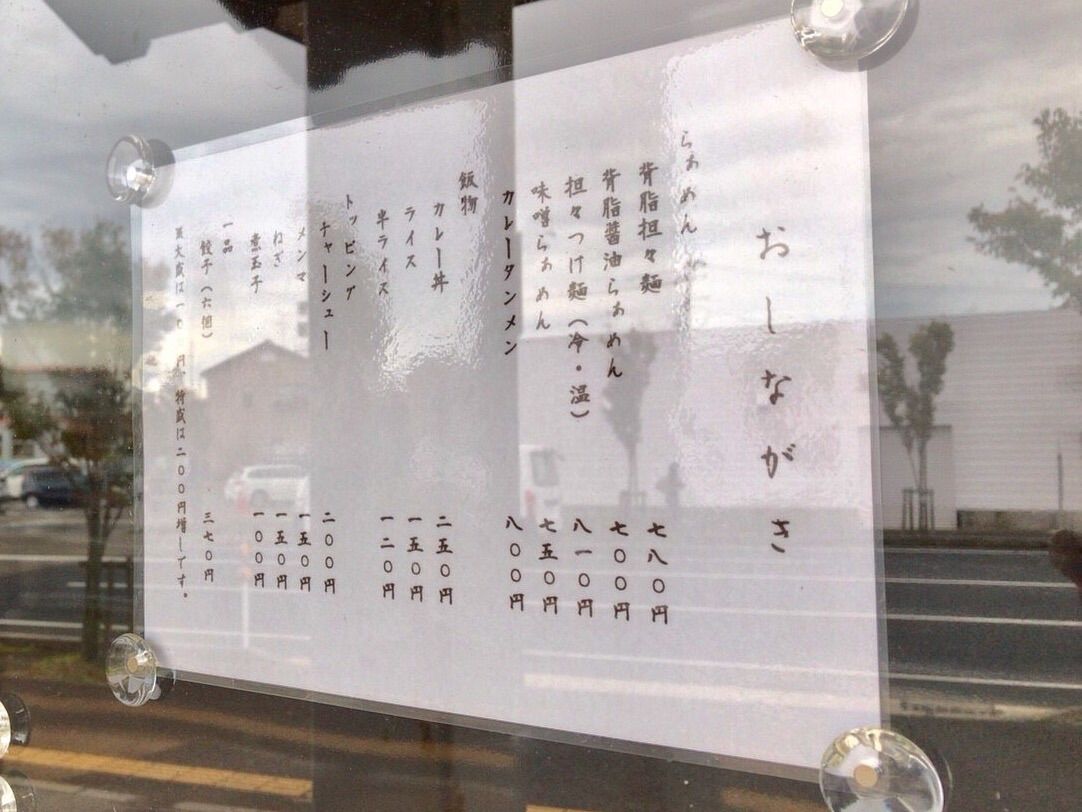 おしながき
らぁめん
背脂担々麺 七八〇円
背脂醤油らぁめん 七〇〇円
担々つけ麺（冷・温） 八一〇円
味噌らぁめん 七五〇円
カレータンメン 八〇〇円
飯物
カレー丼 二五〇円
ライス 一五〇円
半ライス 一二〇円
トッピング
チャーシュー 二〇〇円
メンマ 一五〇円
ねぎ 一五〇円
煮玉子 一〇〇円
一品
餃子（六個） 三七〇円
大盛は一 円 特盛は二〇〇円増しです。